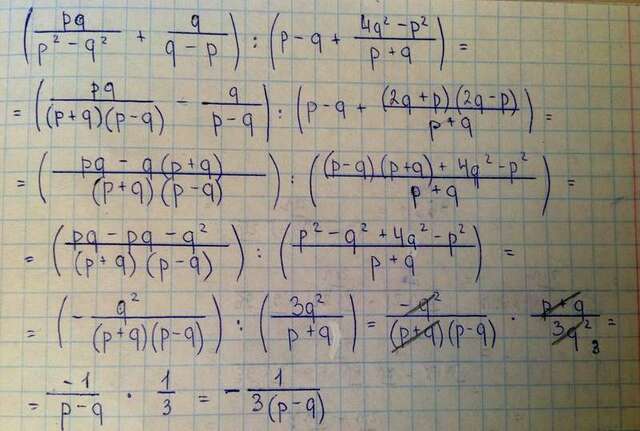 (pq/(p² - q²) + q/(q - p)) : (p - q + (4q² - p²)/(p + q)) =
= (pq/((p+q)(p-q)) - q/(p - q)) : (p - q + (2q+p)(2q-p)/(p+q)) =
= ((pq - q(p+q))/((p+q)(p-q))) : (((p-q)(p+q) + 4q² - p²)/(p+q)) =
= ((pq - pq - q²)/((p+q)(p-q))) : ((p² - q² + 4q² - p²)/(p+q)) =
= (- q²/((p+q)(p-q))) : (3q²/(p+q)) = -q²/((p+q)(p-q)) · (p+q)/(3q²) 3 =
= -1/(p-q) · 1/3 = - 1/(3(p-q))